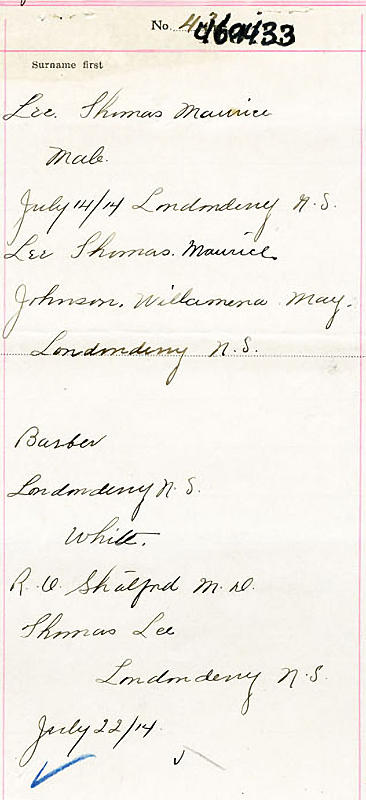 No.
Surname first
Lee. Thomas Maurice
Male.
July 14/14 Londonderry N.S.
Lee Thomas. Maurice.
Johnson. Willamena May.
Londonderry N.S.
Barber
Londonderry N.S.
White.
R. O. Shatford M.D.
Thomas Lee
Londonderry N.S.
July 22/14.